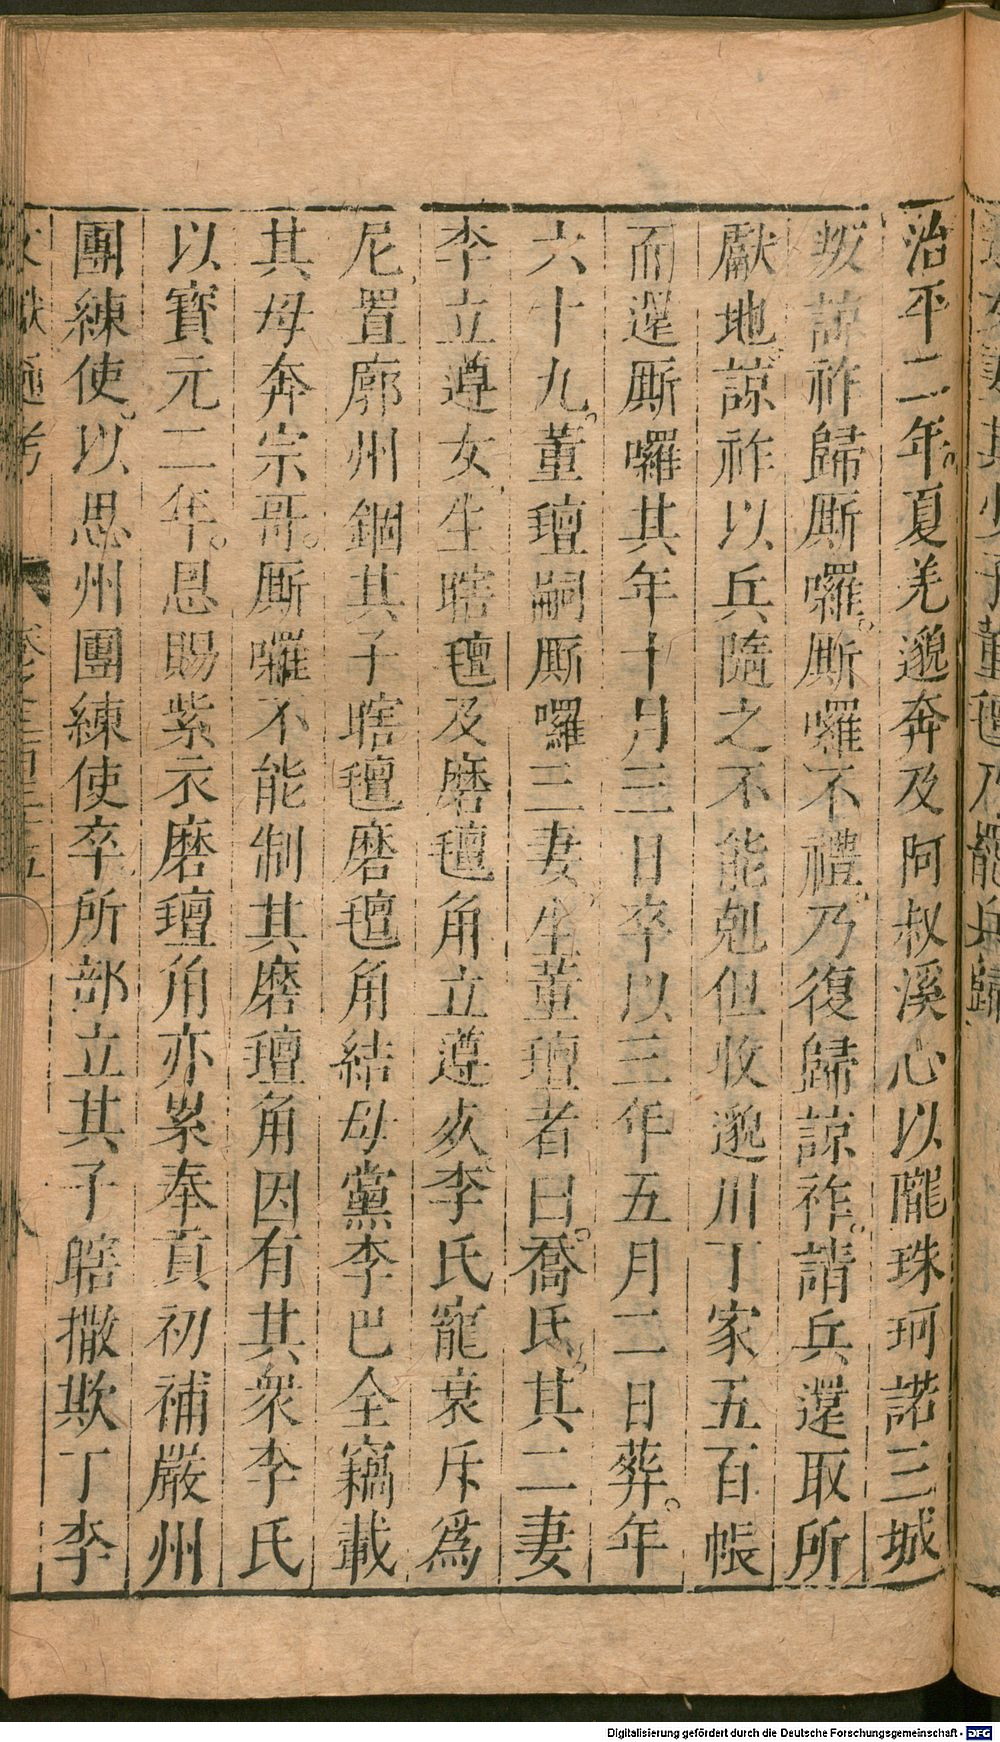 治平二年。夏羌邈奔及阿叔溪心以隴珠珂諾三城
叛諒祚歸厮囉。厮囉不禮。乃復歸諒祚。請兵還取所
獻地。諒祚以兵隨之不能剋但收邈川丁家五百帳
而還厮囉其年十月三日卒以三年五月二日葬。年
六十九。董氊嗣厮囉三妻。生董氊者曰。喬氏。其二妻
李立遵女。生瞎氊及磨氊角立遵死。李氏寵衰斥爲
尼。置廓州錮其子瞎氊磨氊角結母黨李巴全竊載
其母奔宗哥。厮囉不能制其磨氊角因有其衆李氏
以寳元二年。恩賜紫衣磨氊角亦累奉貢初補嚴州
團練使。以思州團練使卒。所部立其子瞎撒欺丁李
文獻通考
董氊
罷兵歸
Digitalisierung gefördert durch die Deutsche Forschungsgemeinschaft - DFG